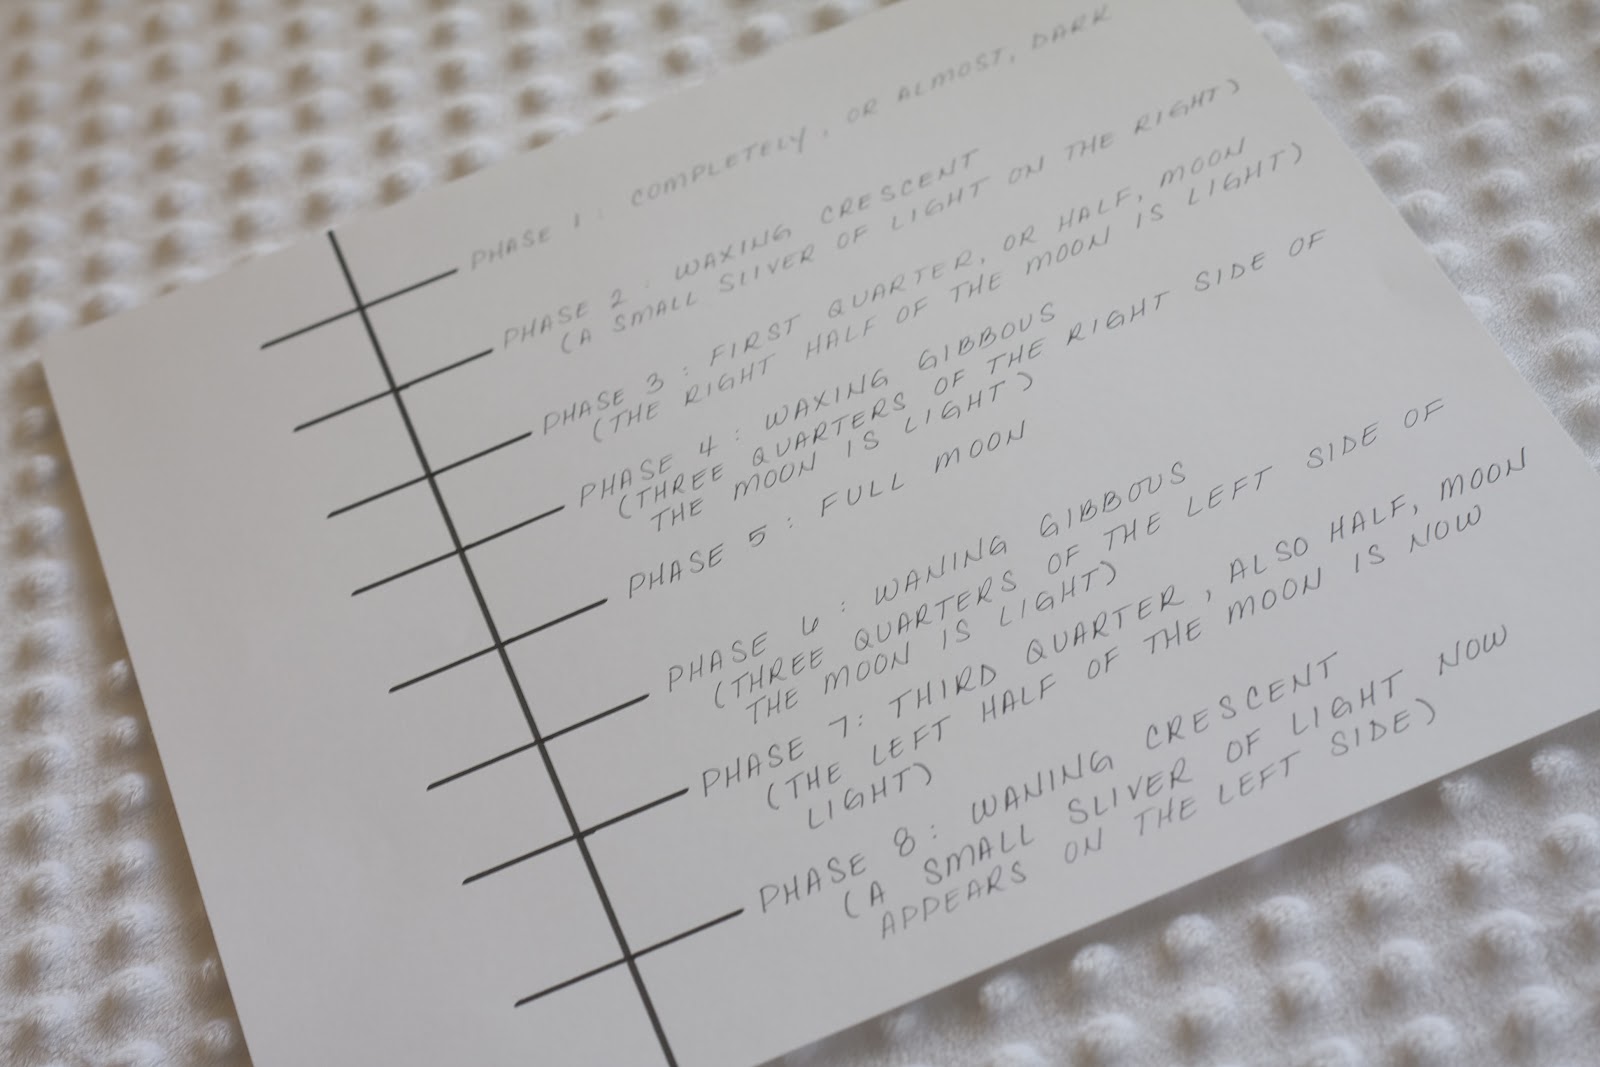 PHASE 1: COMPLETELY, OR ALMOST, DARK
PHASE 2: WAXING CRESCENT
(A SMALL SLIVER OF LIGHT ON THE RIGHT)
PHASE 3: FIRST QUARTER, OR HALF, MOON
(THE RIGHT HALF OF THE MOON IS LIGHT)
PHASE 4: WAXING GIBBOUS
(THREE QUARTERS OF THE RIGHT SIDE OF
THE MOON IS LIGHT)
PHASE 5: FULL MOON
PHASE 6: WANING GIBBOUS
(THREE QUARTERS OF THE LEFT SIDE OF
THE MOON IS LIGHT)
PHASE 7: THIRD QUARTER, ALSO HALF, MOON
(THE LEFT HALF OF THE MOON IS NOW
LIGHT)
PHASE 8: WANING CRESCENT
(A SMALL SLIVER OF LIGHT NOW
APPEARS ON THE LEFT SIDE)